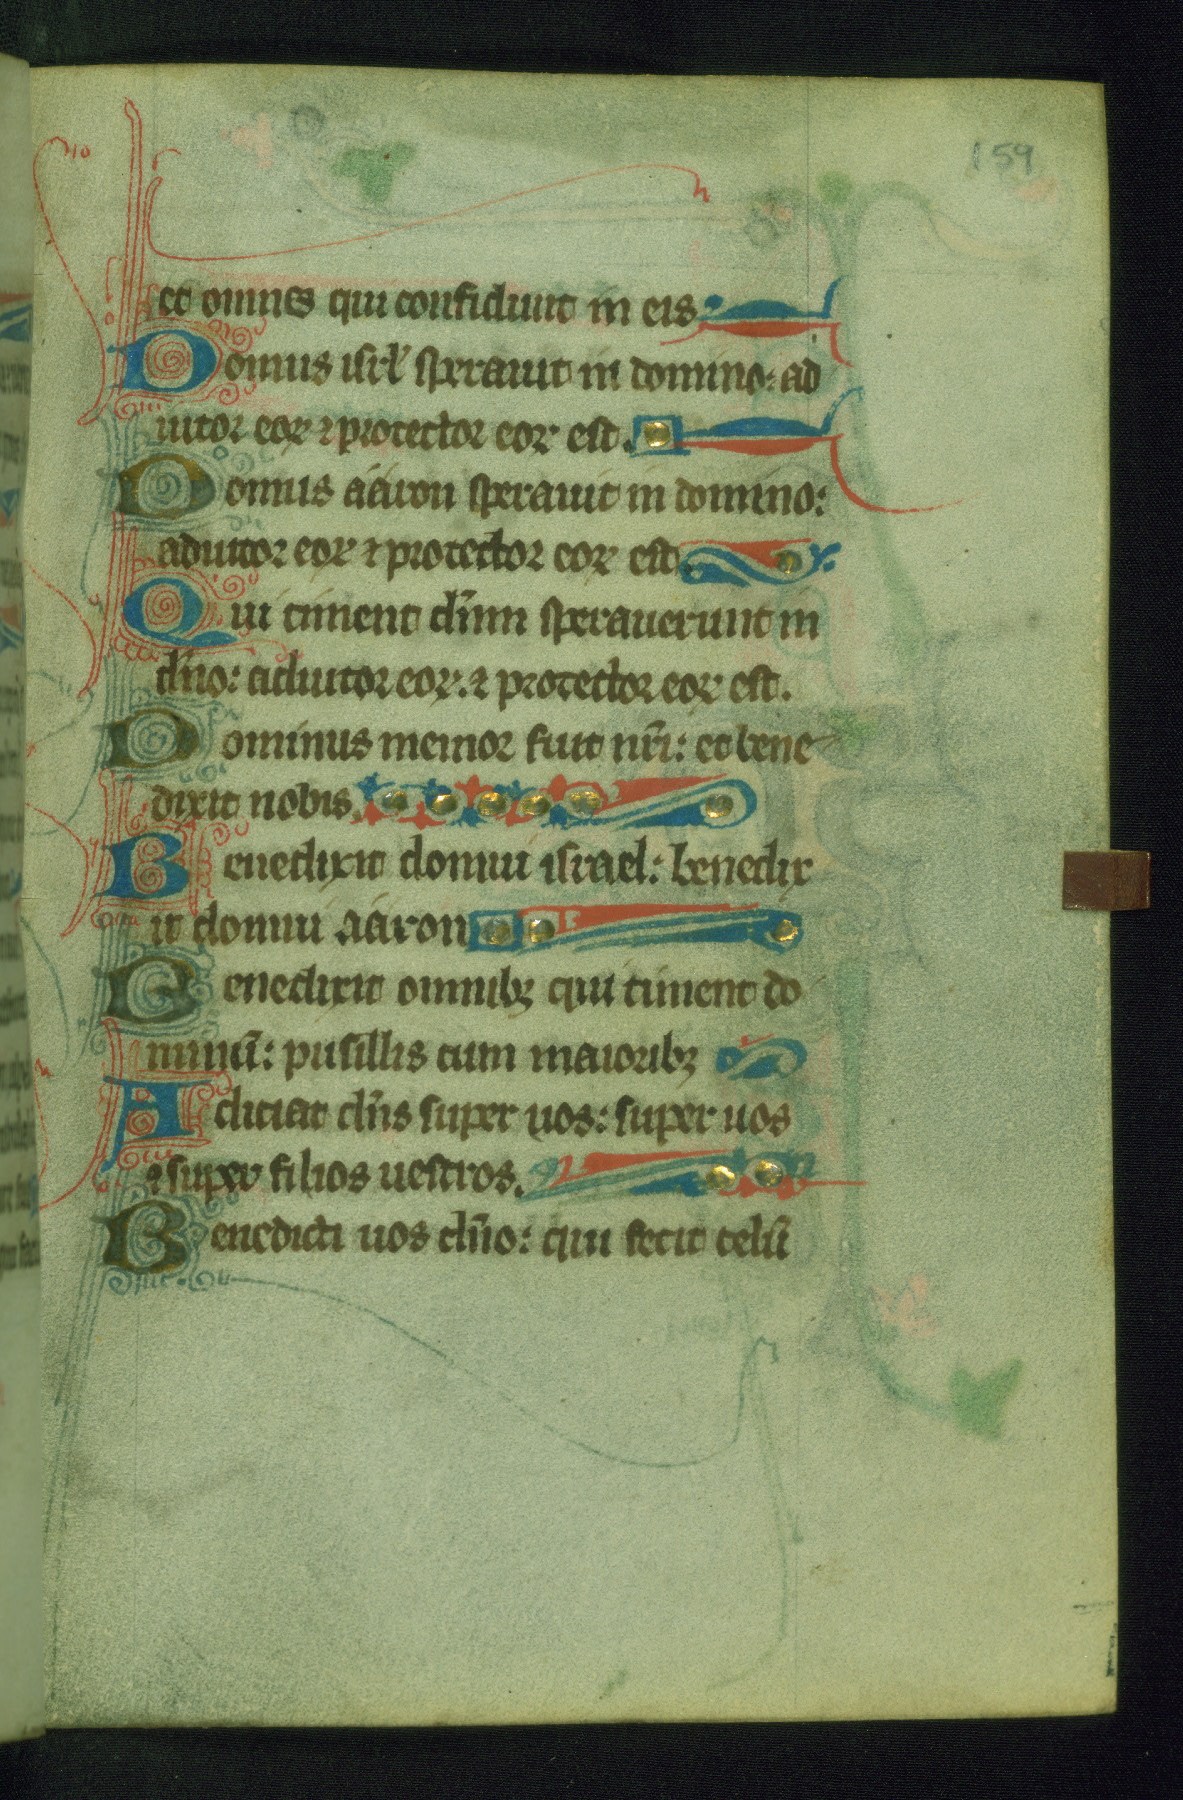 159
et omnes qui confidunt in eis
Domus isrl̄ sperauit in domino: ad
iutor eoꝝ ⁊ protector eoꝝ est.
Domus aáron sperauit in domino:
adiutor eoꝝ ⁊ protector eoꝝ est.
Qui timent dn̄m sperauerunt in
dn̄o: adiutor eoꝝ. ⁊ protector eoꝝ est.
Dominus memor fuit nr̄i: et bene
dixit nobis.
Benedixit domui israel: benedix
it domui aáron
Benedixit omnibꝫ qui timent do
minū: pusillis cum maioribꝫ
Adiciat dn̄s super uos: super uos
⁊ super filios uestros.
Benedicti uos dn̄o: qui fecit celū